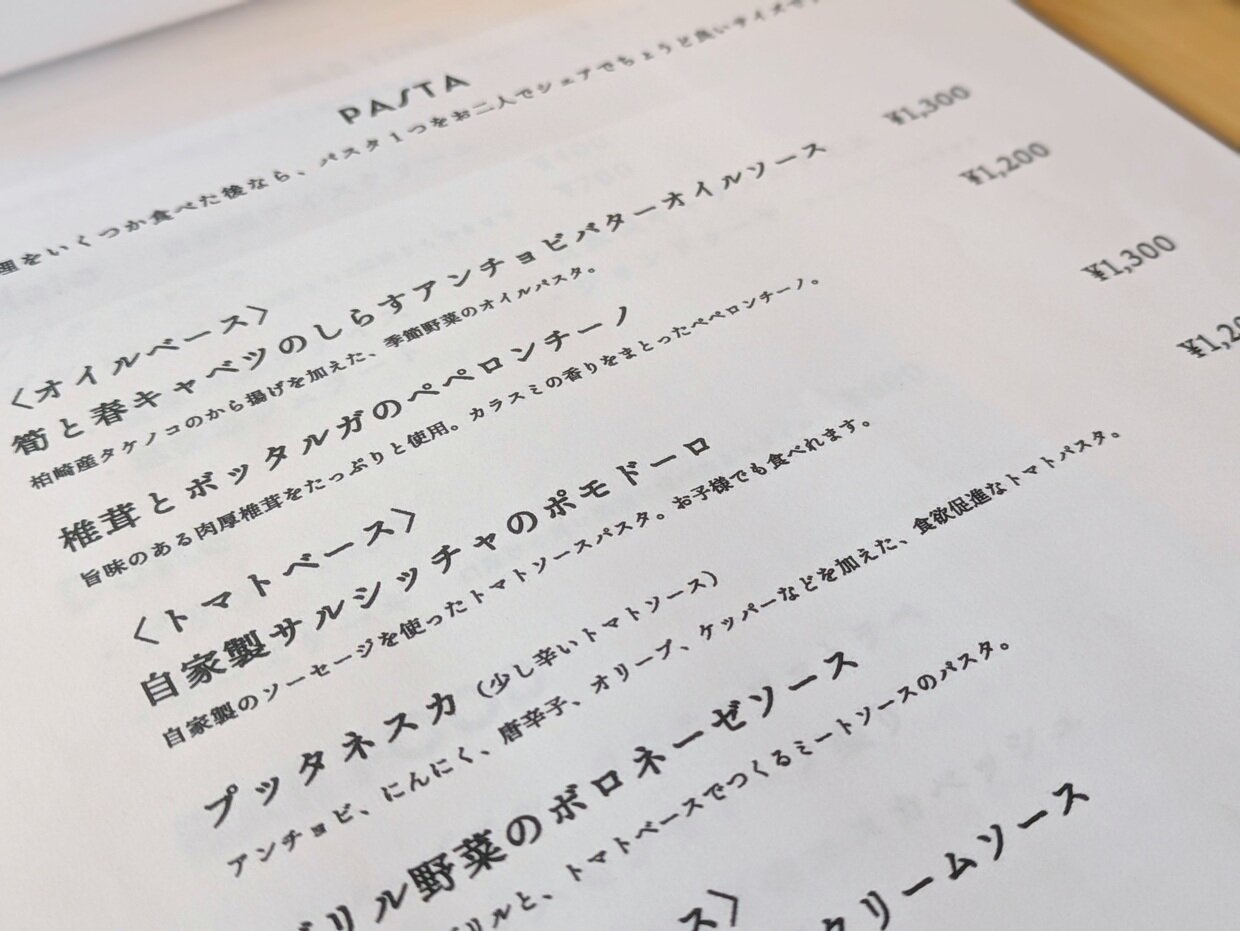 PASTA
理をいくつか食べた後なら、パスタ１つをお二人でシェアでちょうど良いサイズです
〈オイルベース〉
筍と春キャベツのしらすアンチョビバターオイルソース ¥1,300
柏崎産タケノコのから揚げを加えた、季節野菜のオイルパスタ。
椎茸とボッタルガのペペロンチーノ ¥1,200
旨味のある肉厚椎茸をたっぷりと使用。カラスミの香りをまとったペペロンチーノ。
〈トマトベース〉
自家製サルシッチャのポモドーロ ¥1,300
自家製のソーセージを使ったトマトソースパスタ。お子様でも食べれます。
プッタネスカ（少し辛いトマトソース） ¥1,20
アンチョビ、にんにく、唐辛子、オリーブ、ケッパーなどを加えた、食欲促進なトマトパスタ。
リル野菜のボロネーゼソース
リルと、トマトベースでつくるミートソースのパスタ。
ス〉
クリームソース